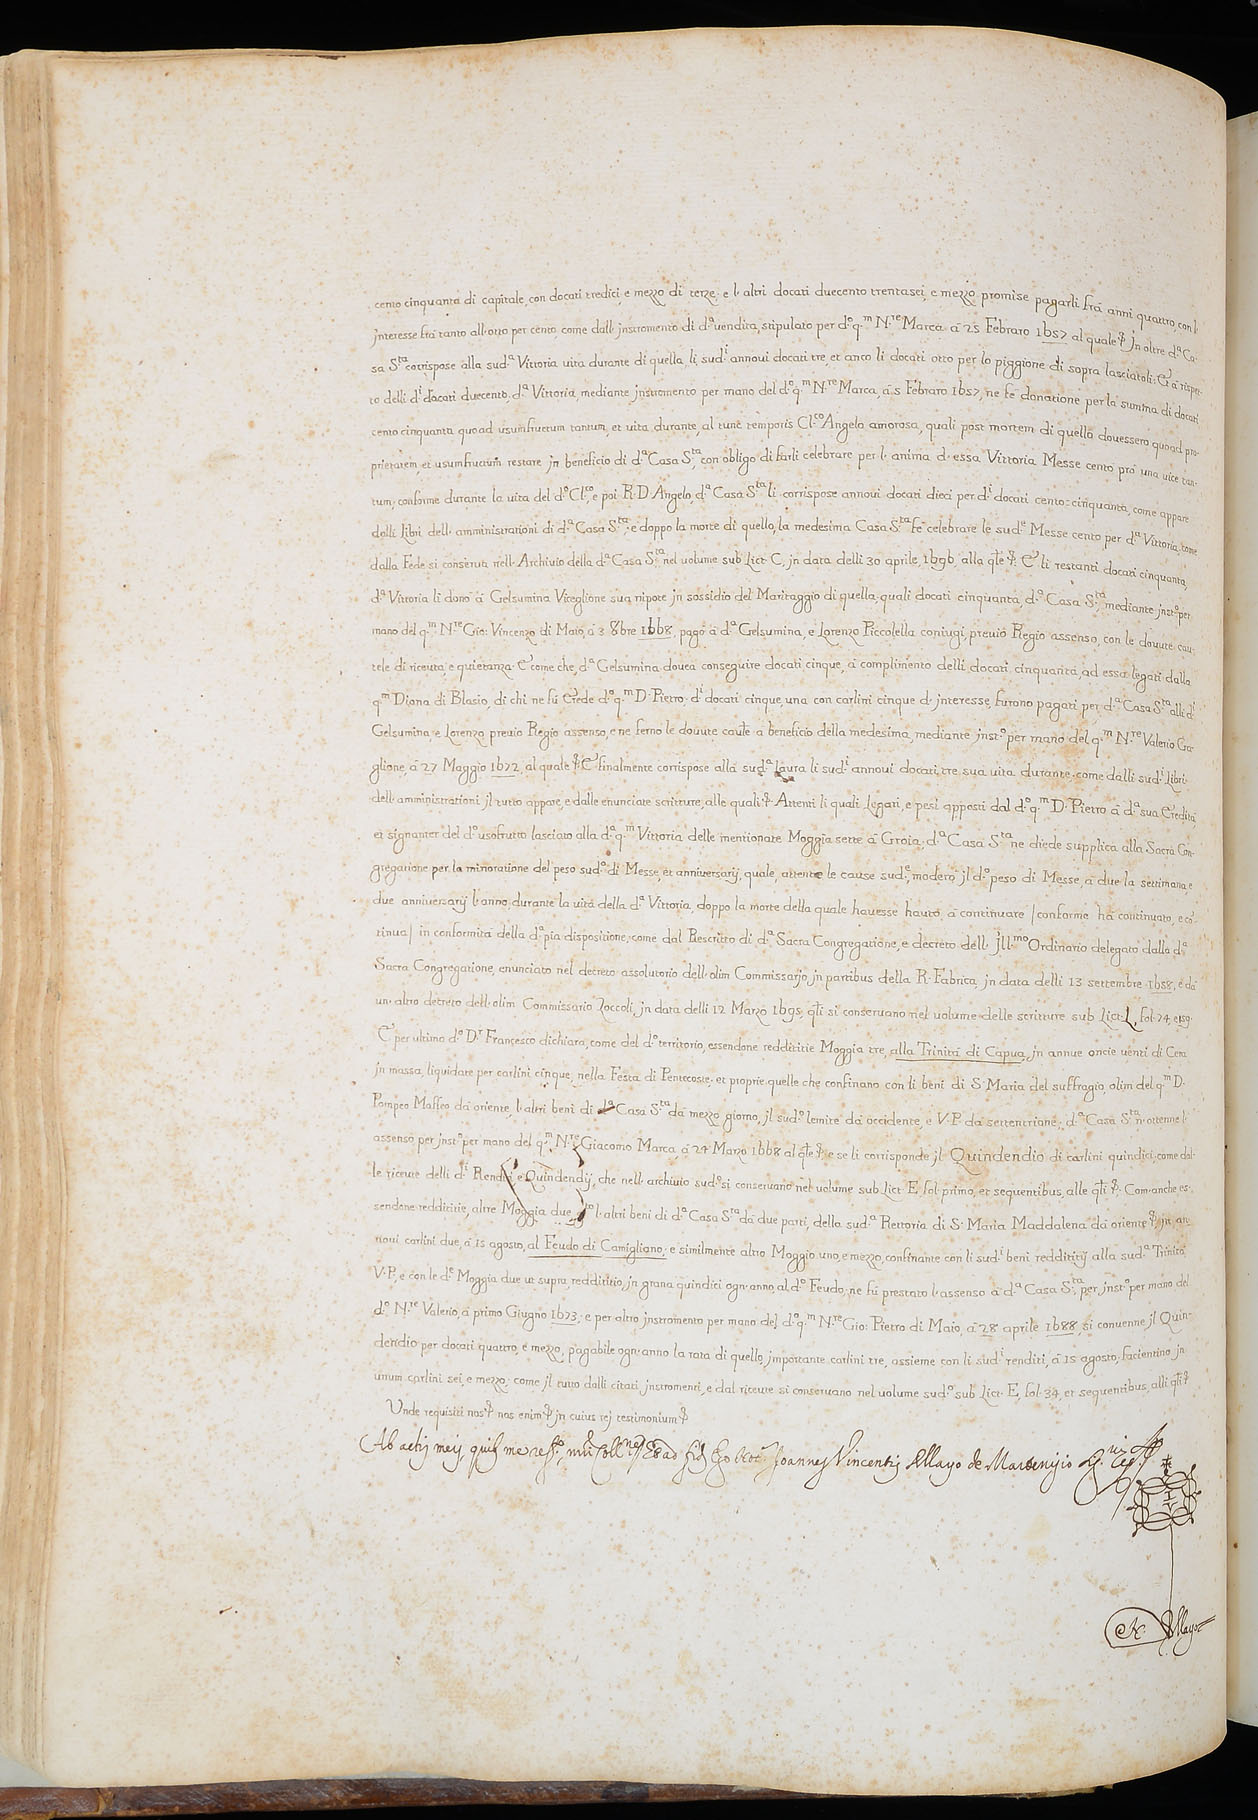 cento cinquanta di capitale, con docati tredici, e mezzo di terze, e l'altri docati duecento trentasei, e mezzo promise pagarli frà anni quattro, con l'
jnteresse frà tanto all'otto per cento, come dall'jnstromento di d.ª vendita, stipulato per d.º q.m N.re Marca à 25 Febraro 1657 al quale &. Jn oltre d.ª Ca-
sa S.ta corrispose alla sud.ª Vittoria vita durante di quella, li sud.i annovi docati tre, et anco li docati otto per lo piggione di sopra lasciatoli: Et à rispet-
to delli d.i docati duecento, d.ª Vittoria, mediante jnstromento per mano del d.º q.m N.re Marca, à 5 Febraro 1657, ne fè donatione per la summa di docati
cento cinquanta quoad usumfructum tantum, et vita durante, al tunc temporis Cl.co Angelo amorosa, quali post mortem di quello dovessero quoad pro-
prietatem et usumfructum restare jn beneficio di d.ª Casa S.ta, con obligo di farli celebrare per l'anima d'essa Vittoria Messe cento prò una vice tan-
tum, conforme durante la vita del d.º Cl.co, e poi R. D. Angelo, d.ª Casa S.ta li corrispose annovi docati dieci per d.i docati cento=cinquanta, come appare
dalli Libri dell'amministrationi di d.ª Casa S.ta, e doppo la morte di quello, la medesima Casa S.ta fè celebrare le sud.e Messe cento per d.ª Vittoria, come
dalla Fede si conserva nell'Archivio della d.ª Casa S.ta nel volume sub Litt. C, jn data delli 30 aprile, 1696, alla q̃le &. E li restanti docati cinquanta,
d.ª Vittoria li donò à Gelsumina Viteglione sua nipote jn sossidio del Maritaggio di quella, quali docati cinquanta, d.ª Casa S.ta, mediante jnst.º per
mano del q.m N.re Gio: Vincenzo di Maio, à 3 8bre 1668, pagò à d.ª Gelsumina, e Lorenzo Piccolella coniugi, previo Regio assenso, con le dovute cau-
tele di ricevuta, e quietanza. E come che, d.ª Gelsumina dovea conseguire docati cinque, à complimento delli docati cinquanta, ad essa legati dalla
q.m Diana di Blasio, di chi ne fù Erede d.º q.m D. Pietro, d.i docati cinque, una con carlini cinque d'jnteresse, furono pagati per d.ª Casa S.ta alli d.i
Gelsumina e Lorenzo previo Regio assenso, e ne ferno le dovute caut̃e à beneficio della medesima, mediante jnst.º per mano del q.m N.re Valerio Gra-
glione, à 27 Maggio 1672, al quale &. E finalmente corrispose alla sud.ª Laura li sud.i annovi docati tre sua vita durante, come dalli sud.i Libri
dell'amministrationi jl tutto appare, e dalle enunciate scritture, alle quali &. Attenti li quali Legati, e pesi apposti dal d.º q.m D. Pietro à d.ª sua Eredità
et signanter del d.º usofrutto lasciato alla d.ª q.m Vittoria delle mentionate Moggia sette à Groia, d.ª Casa S.ta ne diede supplica alla Sacra Con-
gregatione per la minoratione del peso sud.º di Messe, et anniversarij, quale, attente le cause sud.e, moderò jl d.º peso di Messe, à due la settimana, e
due anniversarij l'anno, durante la vita della d.ª Vittoria, doppo la morte della quale havesse hauto à continuare / conforme hà continuato, e cõ-
tinua / in conformità della d.ª pia dispositione, come dal Rescritto di d.ª Sacra Congregatione, e decreto dell'Jll.mo Ordinario delegato dalla d.ª
Sacra Congregatione, enunciato nel decreto assolutorio dell'olim Commissarjo, jn partibus della R. Fabrica, jn data delli 13 settembre 1658, e da
un'altro decreto dell'olim Commissario Zoccoli, jn data delli 12 Marzo 1695, q̃li si conservano nel volume delle scritture sub Litt. L, fol. 24, e sg.
E per ultimo d.º D.r Francesco dichiara, come del d.º territorio, essendone reddititie Moggia tre, alla Trinità di Capua, jn annue oncie venti di Cera
jn massa, liquidate per carlini cinque, nella Festa di Pentecoste, et proprie quelle che confinano con li beni di S. Maria del suffragio, olim del q.m D.
Pompeo Maffeo da oriente, l'altri beni di d.ª Casa S.ta da mezzo giorno, jl sud.º lemite da occidente, e V. P. da settentrione; d.ª Casa S.ta n'ottenne l'
assenso per jnst.º per mano del q.m N.re Giacomo Marca, à 24 Marzo 1668 al q̃le &, e se li corrisponde jl Quindendio di carlini quindici, come dal-
le ricevute delli d.i Renditi, e Quindendij, che nell'archivio sud.º si conservano nel volume sub Litt. E, fol. primo, et sequentibus, alle q̃li &. Com'anche es-
sendone reddititie, altre Moggia due, l'altri beni di d.ª Casa S.ta da due parti, della sud.ª Rettoria di S. Maria Maddalena da oriente &, jn an-
novi carlini due, à 15 agosto, al Feudo di Camigliano; e similmente altro Moggio uno, e mezzo, confinante con li sud.i beni reddititij alla sud.ª Trinità,
V. P, e con le d.e Moggia due ut supra, reddititio, jn grana quindici ogn'anno, al d.º Feudo, ne fù prestato l'assenso à d.ª Casa S.ta, per jnst.º per mano del
d.º N.re Valerio, à primo Giugno 1673; e per altro jnstromento per mano del d.º q.m N.re Gio: Pietro di Maio, à 28 aprile 1688, si convenne jl Quin-
dendio per docati quattro, e mezzo, pagabile ogn'anno la rata di quello, jmportante carlini tre, assieme con li sud.i renditi, à 15 agosto, facientino jn
unum carlini sei, e mezzo; come jl tutto dalli citati jnstromenti, e dal ricevute si conservano nel volume sud.º sub Litt. E, fol. 34, et sequentibus, alli q̃li &.
Unde requisiti nos &. nos enim &. jn cuius rej testimonium &.
Ab actis meis, Ego Not. Joannes Vincentius Mayo de
N. Mayo